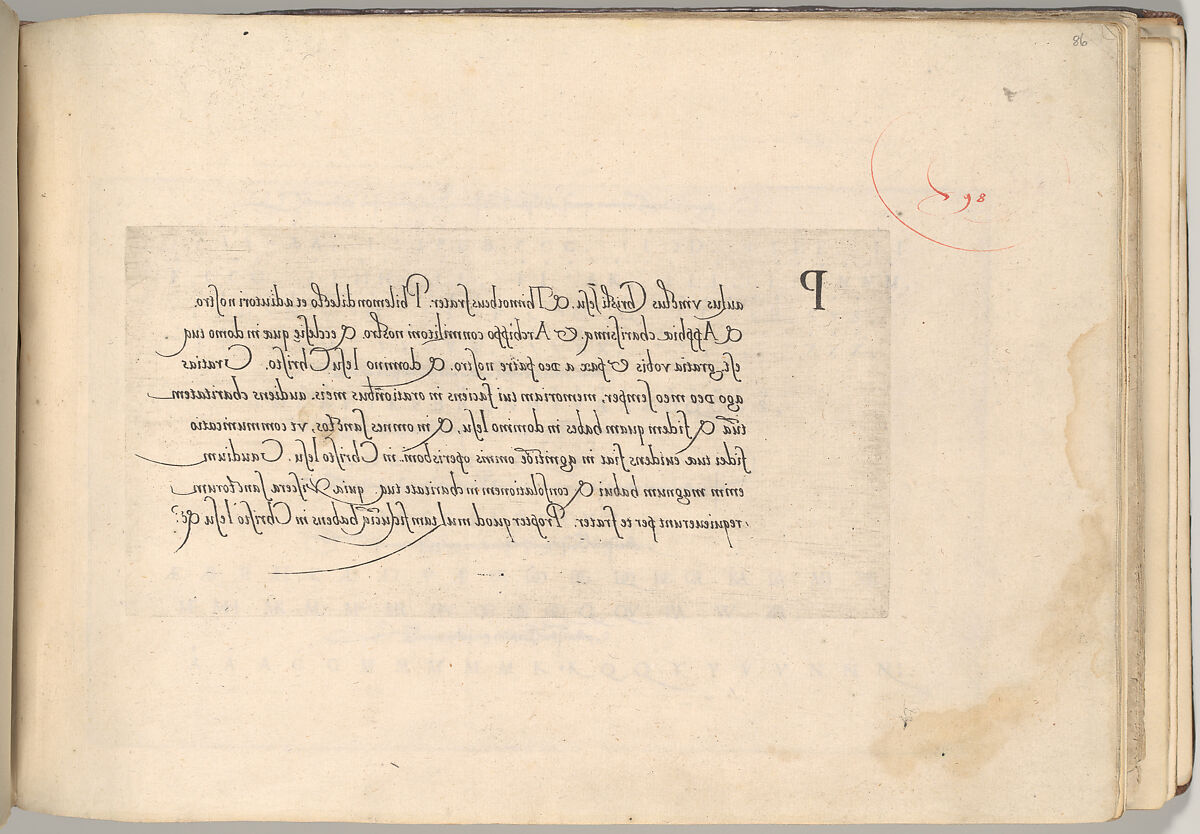 86
98
P
aulus vinctus Christi Iesu. & Thimotheus frater. Philemon dilecto et adiutori nostro.
& Apphiæ charissimę. & Archippo conmilitoni nostro. & ecclesię que in domo tua
est. gratia vobis & pax a DEO patre nostro. & domino IesuChristo. Gratias
ago DEO meo semper, memoriam tui faciens in orationibus meis. audiens charitatem
tuā & fidem quam habes in domino Iesu, & in omnes sanctos, vt communicatio
fidei tuæ euidens fiat in agnitiōe omnis operisboni. in Christo Iesu. Gaudium
enim magnum habui & consolationem in charitate tua. quia viscera sanctorum
requieuerunt per te frater. Propter quod multam fiduciā habens in Christo Iesu &c?